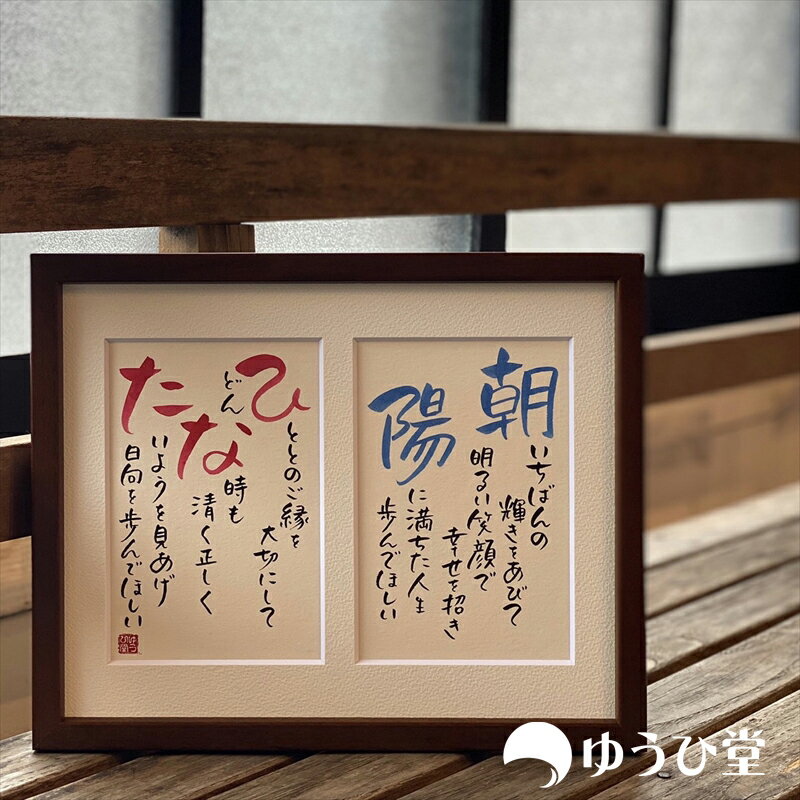 朝いちばんの
輝きをあびて
明るい笑顔で
幸せを招き
陽に満ちた人生
歩んでほしい
ひととのご縁を
大切にして
どんな時も
清く正しく
たいようを見あげ
日向を歩んでほしい
ゆうひ堂
ゆうひ堂